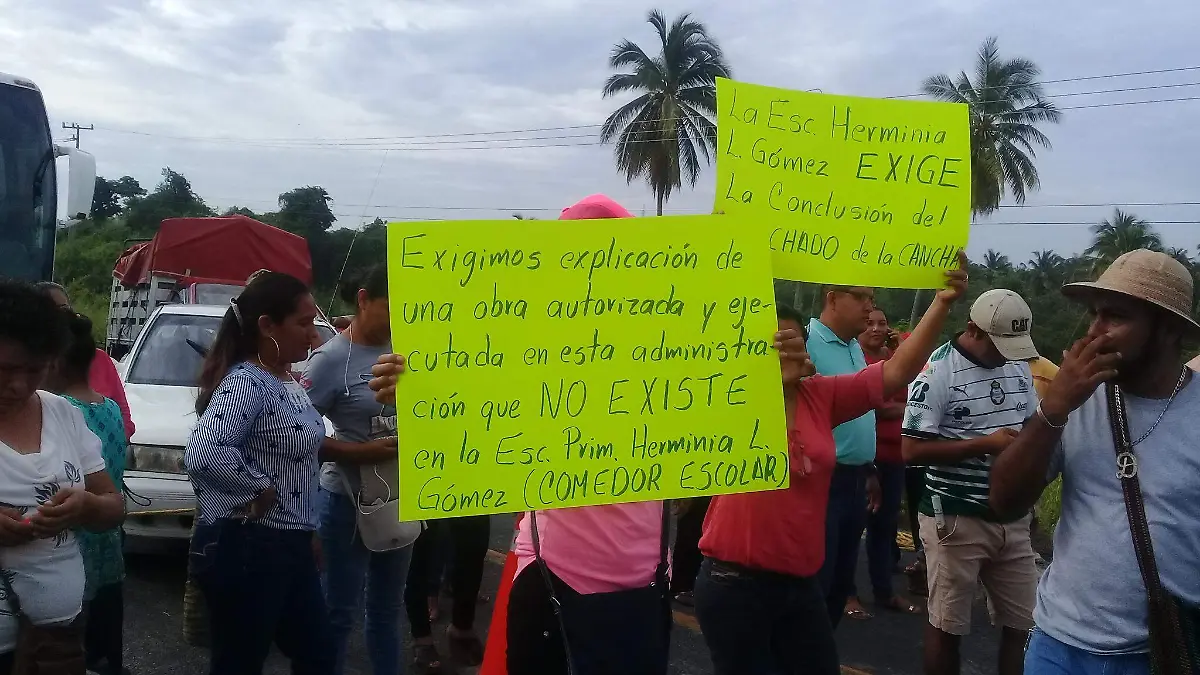 La Esc. Herminia
L. Gómez EXIGE
La Conclusión del
CHADO de la CANCHA
Exigimos explicación de
una obra autorizada y eje-
cutada en esta administra-
ción que NO EXISTE
en la Esc. Prim. Herminia L.
Gómez (COMEDOR ESCOLAR)
CAT